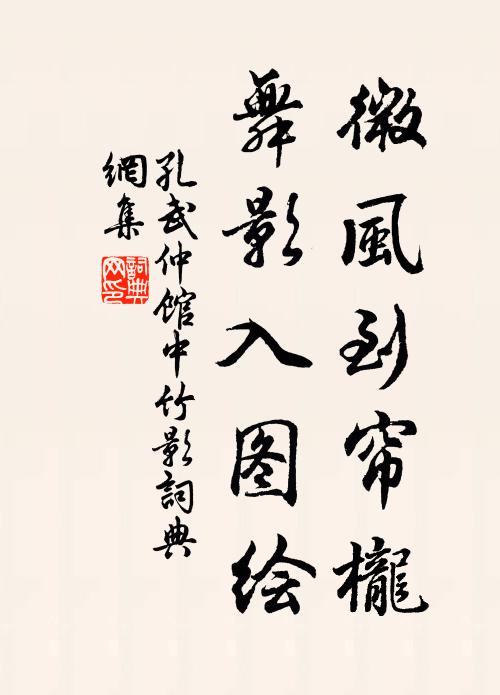 微風到帘櫳
舞影入图绘
孔武仲館中竹影詞典
網集
詞典
网印